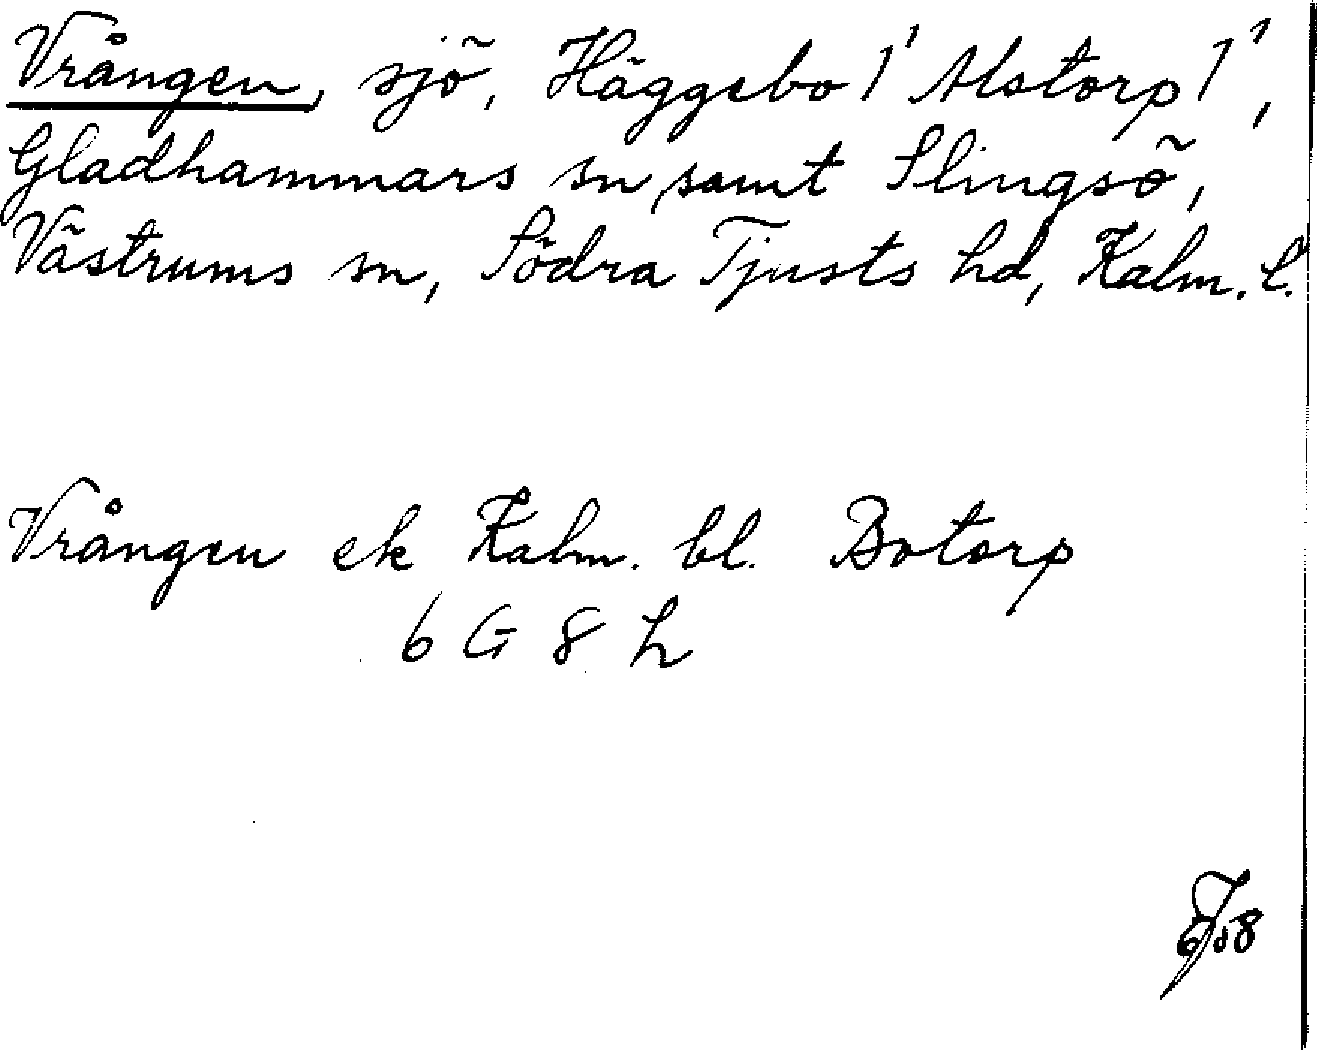 Vrången, sjö, Häggebo 1¹ Alstorp 1¹,
Gladhammars sn, samt Slingsö,
Västrums sn, Södra Tjusts hd, Kalm. l.
Vrången ek Kalm. bl. Botorp
6 G 8 h